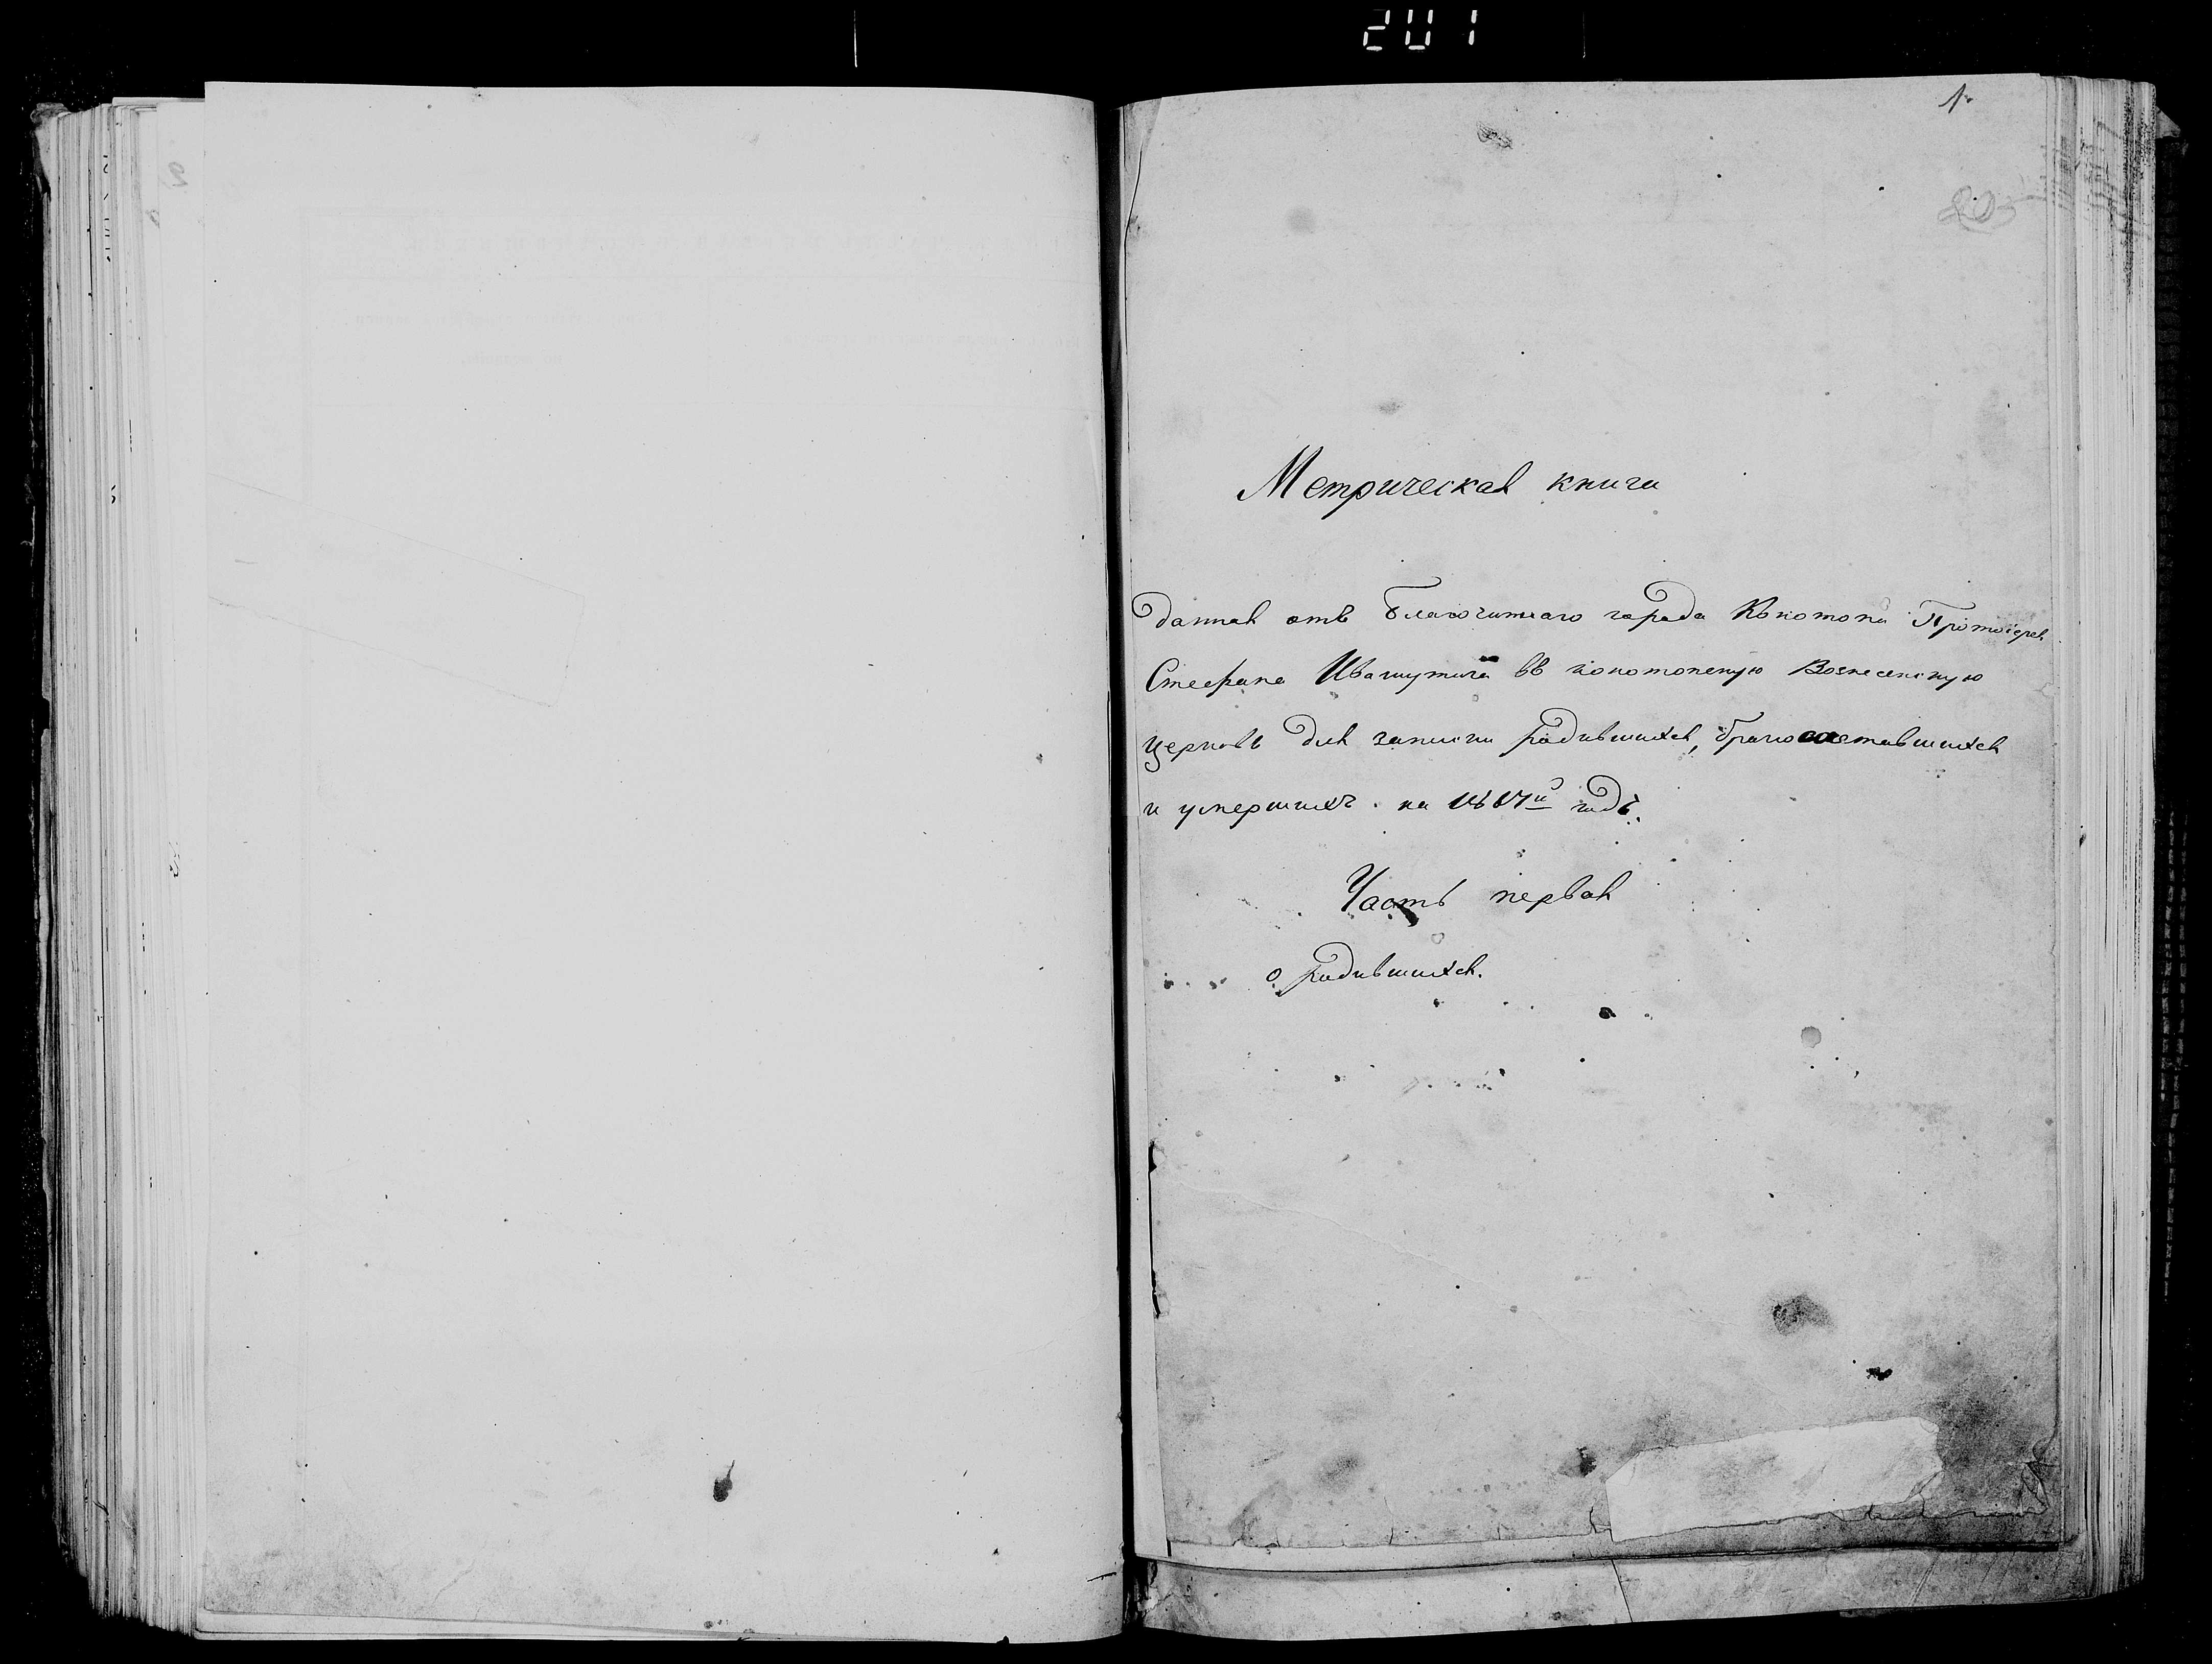 201
1.
Метрическая книга
данная отъ Благочиннаго города Конотопа Протоіерея
Стефана Ивашутича въ конотопскую Вознесенскую
церковь для записки родившихся, бракосочетавшихся
и умершихъ на 1817й годъ.
Часть первая
о родившихся.